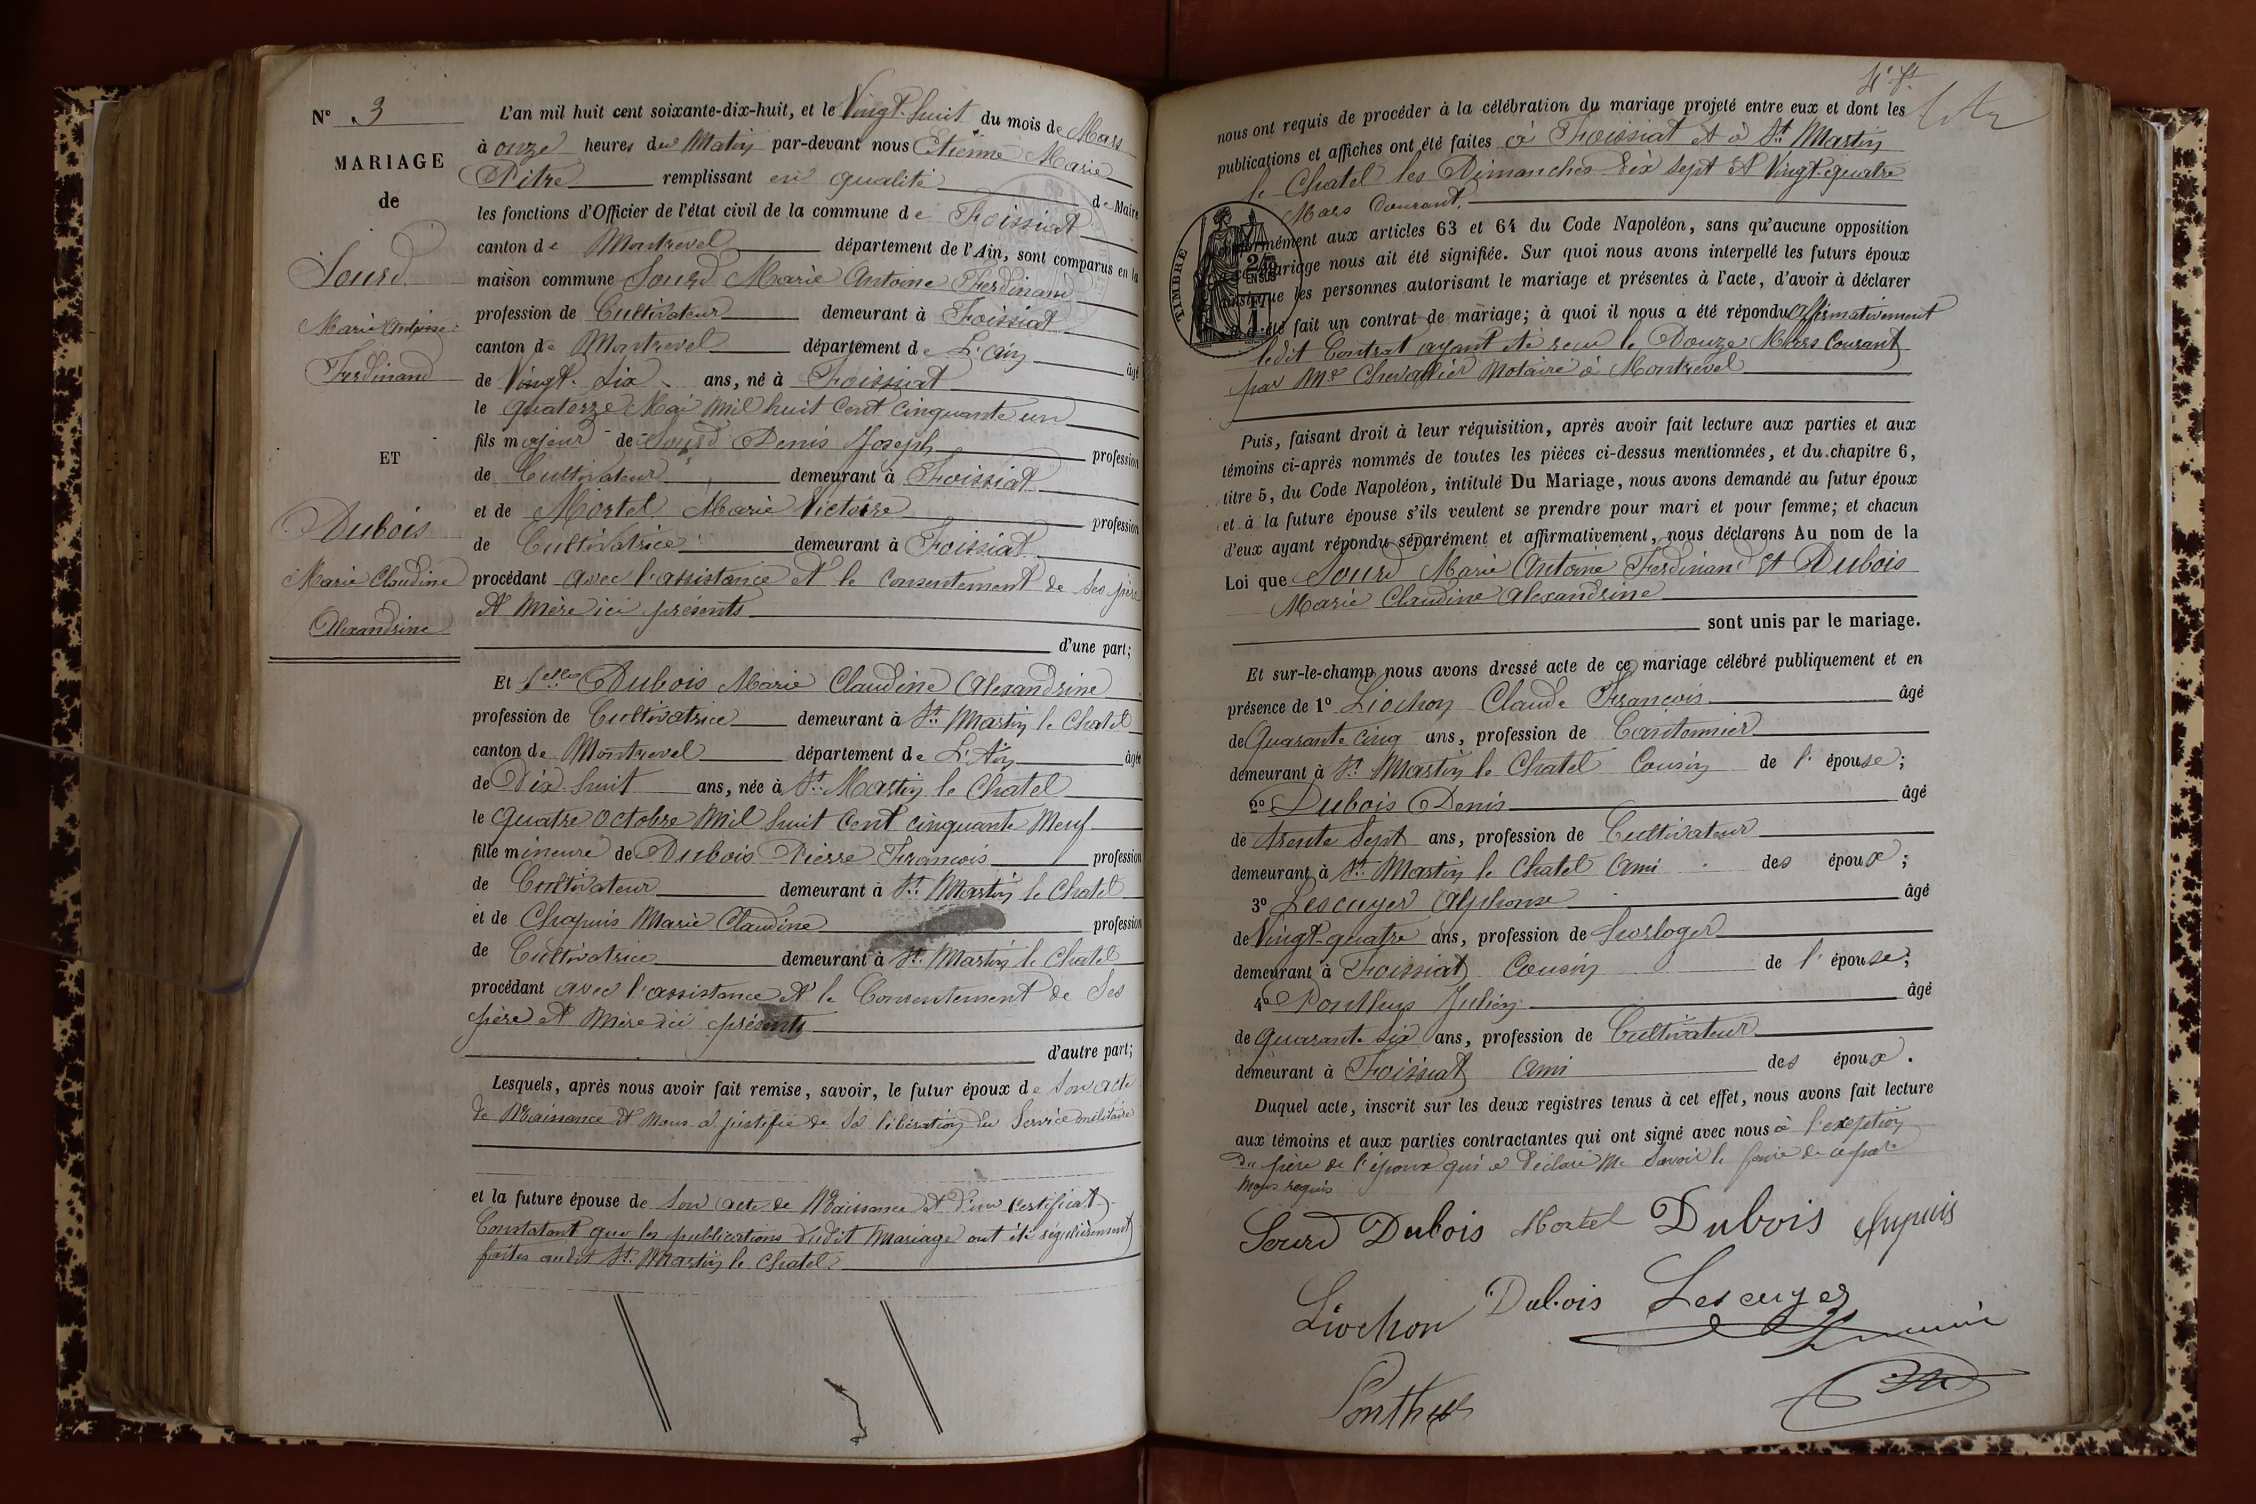 N° 3
MARIAGE
de
Sourd
Marie Antoine
Ferdinand
ET
Dubois
Marie Claudine
Alexandrine
L'an mil huit cent soixante-dix-huit, et le Vingt-huit du mois de Mars
à onze heures du Matin par-devant nous Etienne Marie
Pitre remplissant en qualité de Maire
les fonctions d'Officier de l'état civil de la commune de Foissiat
canton de Montrevel département de l'Ain, sont comparus en la
maison commune Sourd Marie Antoine Ferdinand
profession de Cultivateur demeurant à Foissiat
canton de Montrevel département de L'ain âgé
de Vingt-six ans, né à Foissiat
le quatorze Mai mil huit cent cinquante un
fils majeur de Sourd Denis Joseph profession
de Cultivateur demeurant à Foissiat
et de Mortel Marie Victoire profession
de Cultivatrice demeurant à Foissiat
procédant avec l'assistance et le consentement de ses père
et Mère ici présents
d'une part;
Et Delle Dubois Marie Claudine Alexandrine
profession de Cultivatrice demeurant à St. Martin le Chatel
canton de Montrevel département de L'Ain âgée
de Dix huit ans, née à St. Martin le Chatel
le quatre Octobre Mil huit Cent cinquante Neuf
fille mineure de Dubois Pierre François profession
de Cultivateur demeurant à St. Martin le Chatel
et de Chapuis Marie Claudine profession
de Cultivatrice demeurant à St. Martin le Chatel
procédant avec l'assistance et le Consentement de Ses
père et Mère ici présents
d'autre part;
Lesquels, après nous avoir fait remise, savoir, le futur époux de Son acte
de Naissance et nous a justifié de sa libération du Service militaire
et la future épouse de Son acte de Naissance et d'un certificat
Constatant que les publications dudit Mariage ont été régulièrement
faites audit St. Martin le Chatel
nous ont requis de procéder à la célébration du mariage projeté entre eux et dont les
publications et affiches ont été faites à Foissiat et à St. Martin
le Chatel les Dimanches dix sept et Vingt-quatre
Mars Courant.
TIMBRE
25
EN SUS
conformément aux articles 63 et 64 du Code Napoléon, sans qu'aucune opposition
à ce mariage nous ait été signifiée. Sur quoi nous avons interpellé les futurs époux
ainsi que les personnes autorisant le mariage et présentes à l'acte, d'avoir à déclarer
s'il a été fait un contrat de mariage; à quoi il nous a été répondu affirmativement
ledit Contrat ayant été reçu le Douze Mars Courant
par Me Chevallier Notaire à Montrevel
Puis, faisant droit à leur réquisition, après avoir fait lecture aux parties et aux
témoins ci-après nommés de toutes les pièces ci-dessus mentionnées, et du chapitre 6,
titre 5, du Code Napoléon, intitulé Du Mariage, nous avons demandé au futur époux
et à la future épouse s'ils veulent se prendre pour mari et pour femme; et chacun
d'eux ayant répondu séparément et affirmativement, nous déclarons Au nom de la
Loi que Sourd Marie Antoine Ferdinand et Dubois
Marie Claudine Alexandrine
sont unis par le mariage.
Et sur-le-champ nous avons dressé acte de ce mariage célébré publiquement et en
présence de 1° Liochon Claude François âgé
de Quarante cinq ans, profession de Cantonnier
demeurant à St. Martin le Chatel Cousin de l'épouse;
2° Dubois Denis âgé
de trente sept ans, profession de Cultivateur
demeurant à St. Martin le Chatel ami des époux;
3° Lescuyer Alphonse âgé
de Vingt-quatre ans, profession de horloger
demeurant à Foissiat Cousin de l'épouse;
4° Ponthus Julien âgé
de quarante six ans, profession de Cultivateur
demeurant à Foissiat Ami des époux.
Duquel acte, inscrit sur les deux registres tenus à cet effet, nous avons fait lecture
aux témoins et aux parties contractantes qui ont signé avec nous à l'exeption
du père de l'époux qui a déclaré ne Savoir le faire de ce par
nous requis
Sourd Dubois Mortel Dubois Chapuis
Liochon Dubois Lescuyer
Ponthus